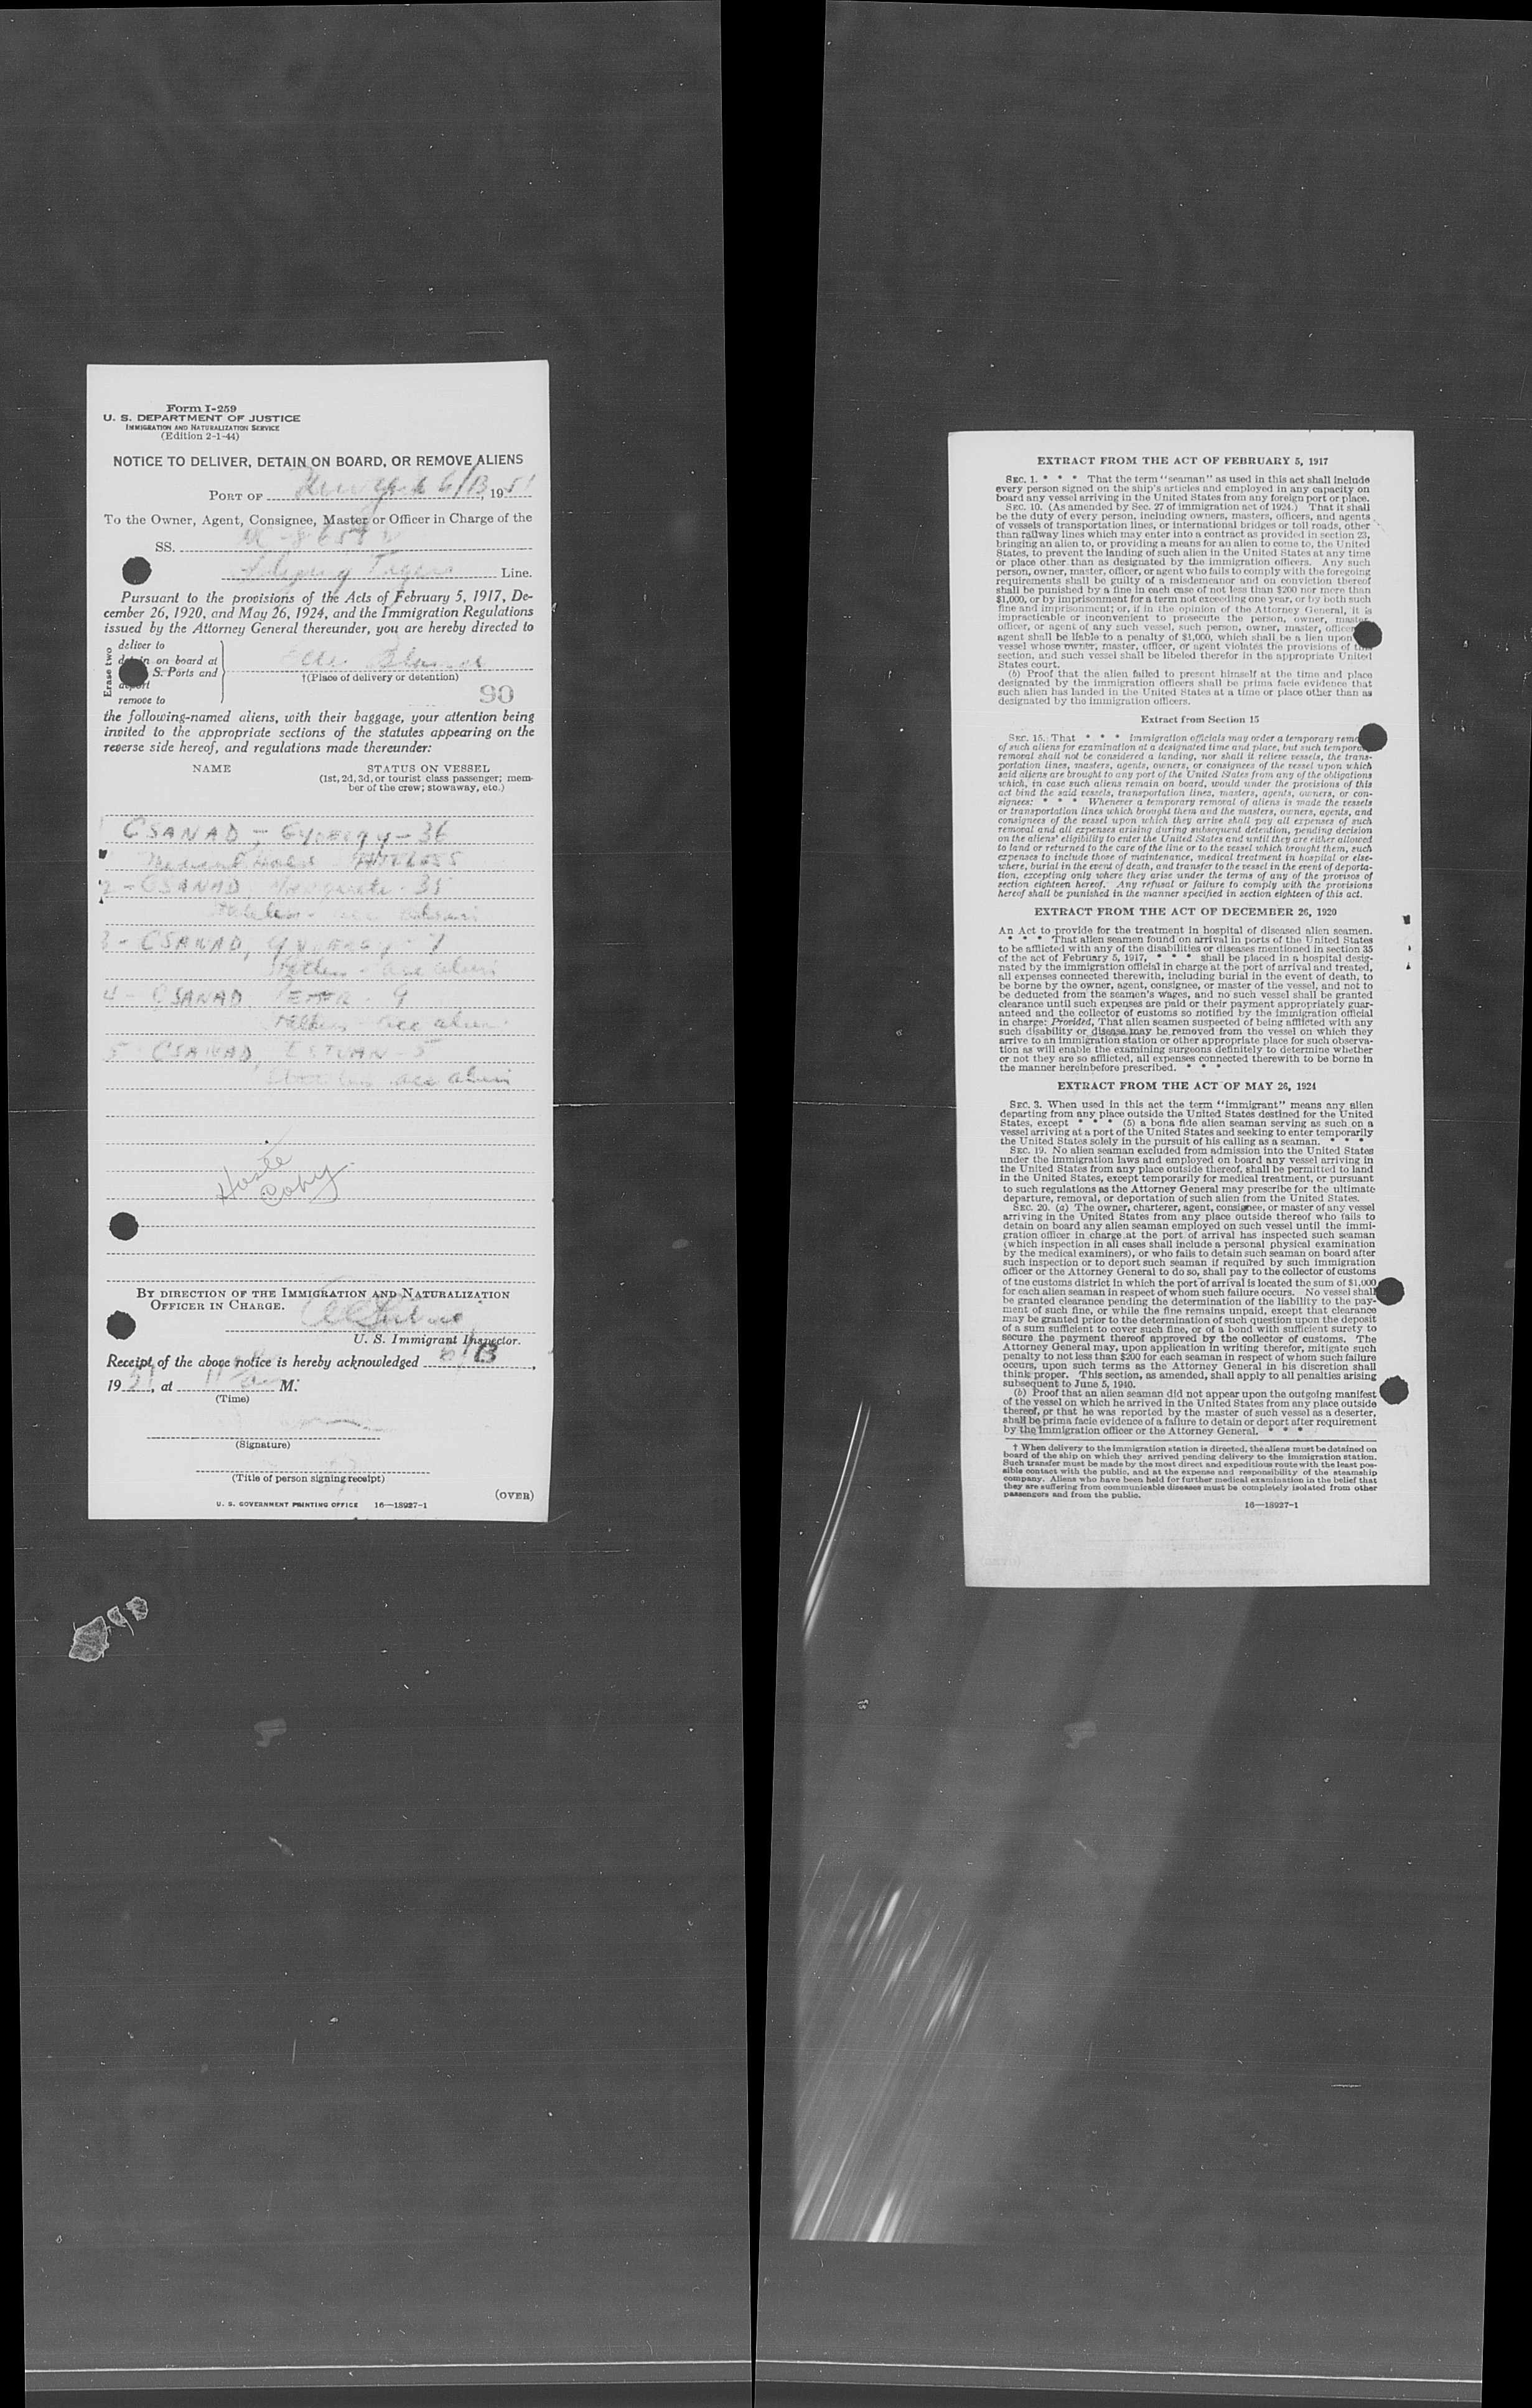 Form I-259
U. S. DEPARTMENT OF JUSTICE
IMMIGRATION AND NATURALIZATION SERVICE
(Edition 2-1-44)
NOTICE TO DELIVER, DETAIN ON BOARD, OR REMOVE ALIENS
PORT OF New York 6/13, 1951
To the Owner, Agent, Consignee, Master or Officer in Charge of the
SS.
Flying Tigers Line.
Pursuant to the provisions of the Acts of February 5, 1917, De-
cember 26, 1920, and May 26, 1924, and the Immigration Regulations
issued by the Attorney General thereunder, you are hereby directed to
Erase two
deliver to
on board at
S. Ports and
remove to
Ellis Island
†(Place of delivery or detention)
90
the following-named aliens, with their baggage, your attention being
invited to the appropriate sections of the statutes appearing on the
reverse side hereof, and regulations made thereunder:
NAME STATUS ON VESSEL
(1st, 2d, 3d, or tourist class passenger; mem-
ber of the crew; stowaway, etc.)
1 CSANAD - Gyoergy - 36
Medical Hold
2 - CSANAD 35
acc alien
3 - CSANAD, GYOERGY - 7
acc alien
4 - CSANAD PETER - 9
acc alien
5 - CSANAD, ESTVAN - 5
acc alien
Copy
BY DIRECTION OF THE IMMIGRATION AND NATURALIZATION
OFFICER IN CHARGE.
U. S. Immigrant Inspector.
Receipt of the above notice is hereby acknowledged 6/13,
1951, at 11 am M.
(Time)
(Signature)
(Title of person signing receipt)
(OVER)
U. S. GOVERNMENT PRINTING OFFICE 16—18927-1
EXTRACT FROM THE ACT OF FEBRUARY 5, 1917
SEC. 1. * * * That the term "seaman" as used in this act shall include
every person signed on the ship's articles and employed in any capacity on
board any vessel arriving in the United States from any foreign port or place.
SEC. 10. (As amended by Sec. 27 of immigration act of 1924.) That it shall
be the duty of every person, including owners, masters, officers, and agents
of vessels of transportation lines, or international bridges or toll roads, other
than railway lines which may enter into a contract as provided in section 23,
bringing an alien to, or providing a means for an alien to come to, the United
States, to prevent the landing of such alien in the United States at any time
or place other than as designated by the immigration officers. Any such
person, owner, master, officer, or agent who fails to comply with the foregoing
requirements shall be guilty of a misdemeanor and on conviction thereof
shall be punished by a fine in each case of not less than $200 nor more than
$1,000, or by imprisonment for a term not exceeding one year, or by both such
fine and imprisonment; or, if in the opinion of the Attorney General, it is
impracticable or inconvenient to prosecute the person, owner, master,
officer, or agent of any such vessel, such person, owner, master, officer
agent shall be liable to a penalty of $1,000, which shall be a lien upon
vessel whose owner, master, officer, or agent violates the provisions of this
section, and such vessel shall be libeled therefor in the appropriate United
States court.
(b) Proof that the alien failed to present himself at the time and place
designated by the immigration officers shall be prima facie evidence that
such alien has landed in the United States at a time or place other than as
designated by the immigration officers.
Extract from Section 15
SEC. 15. That * * * immigration officials may order a temporary remo
of such aliens for examination at a designated time and place, but such tempora
removal shall not be considered a landing, nor shall it relieve vessels, the trans-
portation lines, masters, agents, owners, or consignees of the vessel upon which
said aliens are brought to any port of the United States from any of the obligations
which, in case such aliens remain on board, would under the provisions of this
act bind the said vessels, transportation lines, masters, agents, owners, or con-
signees: * * * Whenever a temporary removal of aliens is made the vessels
or transportation lines which brought them and the masters, owners, agents, and
consignees of the vessel upon which they arrive shall pay all expenses of such
removal and all expenses arising during subsequent detention, pending decision
on the aliens' eligibility to enter the United States and until they are either allowed
to land or returned to the care of the line or to the vessel which brought them, such
expenses to include those of maintenance, medical treatment in hospital or else-
where, burial in the event of death, and transfer to the vessel in the event of deporta-
tion, excepting only where they arise under the terms of any of the provisos of
section eighteen hereof. Any refusal or failure to comply with the provisions
hereof shall be punished in the manner specified in section eighteen of this act.
EXTRACT FROM THE ACT OF DECEMBER 26, 1920
An Act to provide for the treatment in hospital of diseased alien seamen.
* * * That alien seamen found on arrival in ports of the United States
to be afflicted with any of the disabilities or diseases mentioned in section 35
of the act of February 5, 1917, * * * shall be placed in a hospital desig-
nated by the immigration official in charge at the port of arrival and treated,
all expenses connected therewith, including burial in the event of death, to
be borne by the owner, agent, consignee, or master of the vessel, and not to
be deducted from the seamen's wages, and no such vessel shall be granted
clearance until such expenses are paid or their payment appropriately guar-
anteed and the collector of customs so notified by the immigration official
in charge: Provided, That alien seamen suspected of being afflicted with any
such disability or disease may be removed from the vessel on which they
arrive to an immigration station or other appropriate place for such observa-
tion as will enable the examining surgeons definitely to determine whether
or not they are so afflicted, all expenses connected therewith to be borne in
the manner hereinbefore prescribed. * * *
EXTRACT FROM THE ACT OF MAY 26, 1924
SEC. 3. When used in this act the term "immigrant" means any alien
departing from any place outside the United States destined for the United
States, except * * * (5) a bona fide alien seaman serving as such on a
vessel arriving at a port of the United States and seeking to enter temporarily
the United States solely in the pursuit of his calling as a seaman. * * *
SEC. 19. No alien seaman excluded from admission into the United States
under the immigration laws and employed on board any vessel arriving in
the United States from any place outside thereof, shall be permitted to land
in the United States, except temporarily for medical treatment, or pursuant
to such regulations as the Attorney General may prescribe for the ultimate
departure, removal, or deportation of such alien from the United States.
SEC. 20. (a) The owner, charterer, agent, consignee, or master of any vessel
arriving in the United States from any place outside thereof who fails to
detain on board any alien seaman employed on such vessel until the immi-
gration officer in charge at the port of arrival has inspected such seaman
(which inspection in all cases shall include a personal physical examination
by the medical examiners), or who fails to detain such seaman on board after
such inspection or to deport such seaman if required by such immigration
officer or the Attorney General to do so, shall pay to the collector of customs
of the customs district in which the port of arrival is located the sum of $1,000
for each alien seaman in respect of whom such failure occurs. No vessel shall
be granted clearance pending the determination of the liability to the pay-
ment of such fine, or while the fine remains unpaid, except that clearance
may be granted prior to the determination of such question upon the deposit
of a sum sufficient to cover such fine, or of a bond with sufficient surety to
secure the payment thereof approved by the collector of customs. The
Attorney General may, upon application in writing therefor, mitigate such
penalty to not less than $200 for each seaman in respect of whom such failure
occurs, upon such terms as the Attorney General in his discretion shall
think proper. This section, as amended, shall apply to all penalties arising
subsequent to June 5, 1940.
(b) Proof that an alien seaman did not appear upon the outgoing manifest
of the vessel on which he arrived in the United States from any place outside
thereof, or that he was reported by the master of such vessel as a deserter,
shall be prima facie evidence of a failure to detain or deport after requirement
by the immigration officer or the Attorney General. * * *
† When delivery to the immigration station is directed, the aliens must be detained on
board of the ship on which they arrived pending delivery to the immigration station.
Such transfer must be made by the most direct and expeditious route with the least pos-
sible contact with the public, and at the expense and responsibility of the steamship
company. Aliens who have been held for further medical examination in the belief that
they are suffering from communicable diseases must be completely isolated from other
passengers and from the public.
16—18927-1